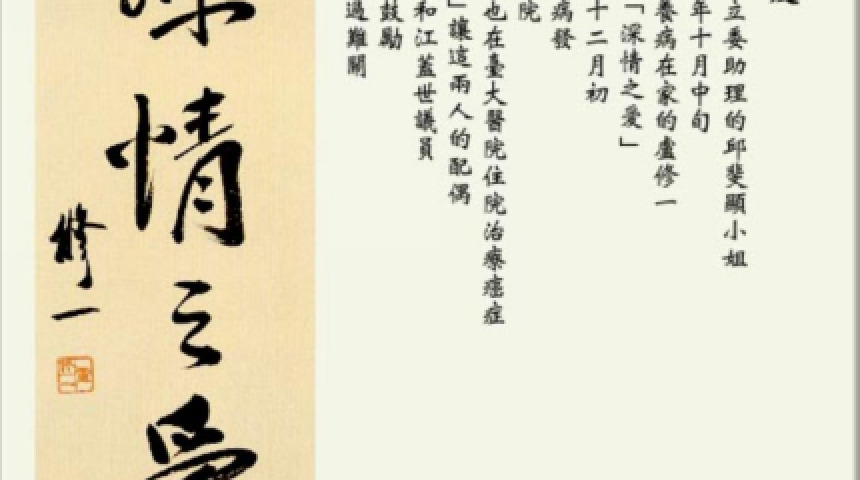 立委助理的邱斐顯小姐
年十月中旬
養病在家的盧修一
「深情之愛」
十二月初
病發
院
也在臺大醫院住院治療癌症
」讓這兩人的配偶
和江蓋世議員
鼓勵
過難關
深情之愛
修一